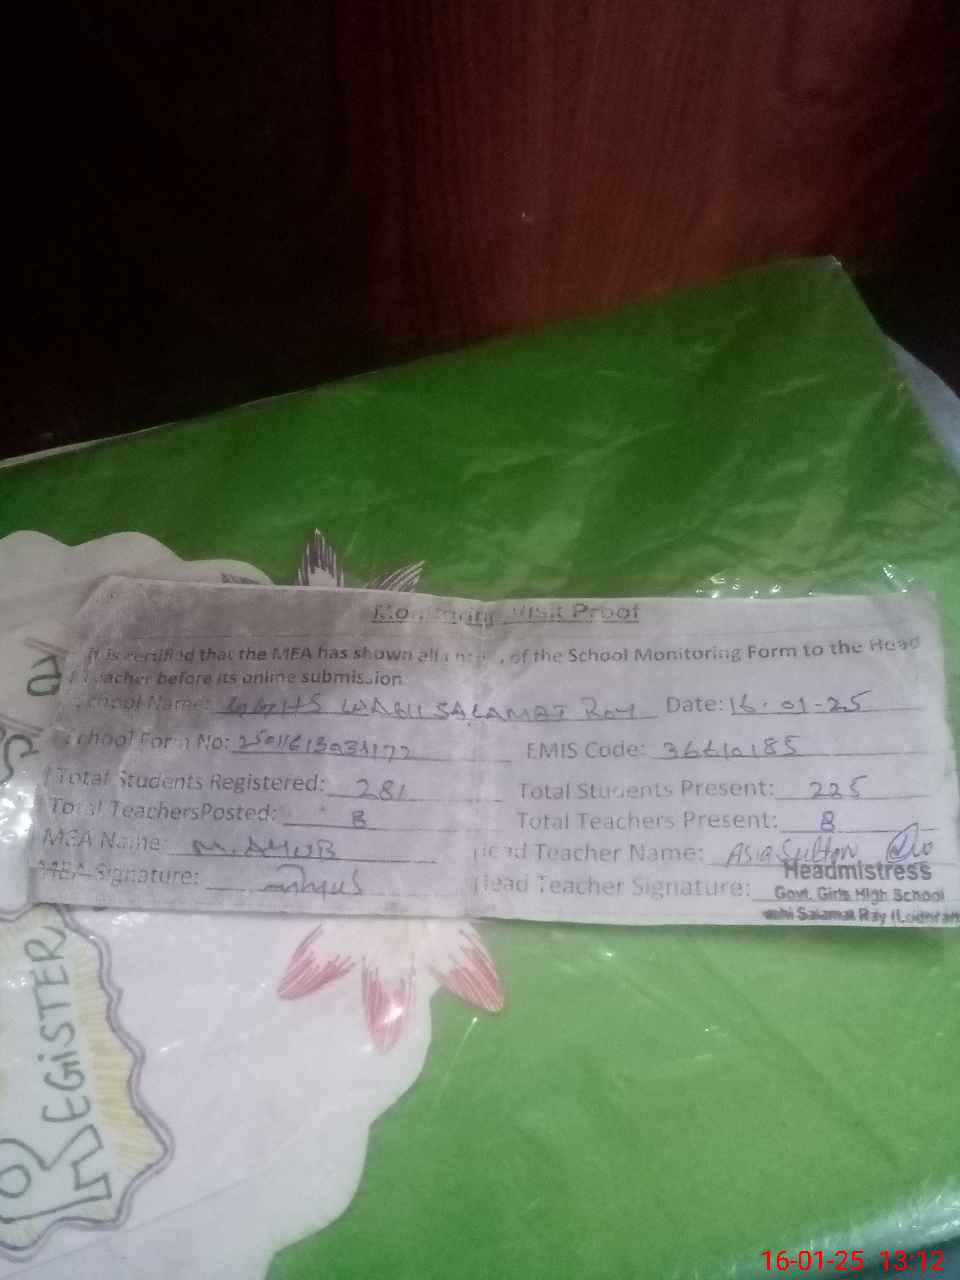 Monitoring Visit Proof
It is certified that the MEA has shown all of the School Monitoring Form to the Head
Teacher before its online submission
School Name: GGHS WAHI SALAMAT RAY Date: 16-01-25
School Form No: EMIS Code: 36610185
Total Students Registered: 281 Total Students Present: 225
Total TeachersPosted: 8 Total Teachers Present: 8
MEA Name: M. AYUB Head Teacher Name: Asia Sultan
MEA Signature: Head Teacher Signature:
Headmistress
Govt. Girls High School
Wahi Salamat Ray (Lodhran)
REGISTER
16-01-25 13:12